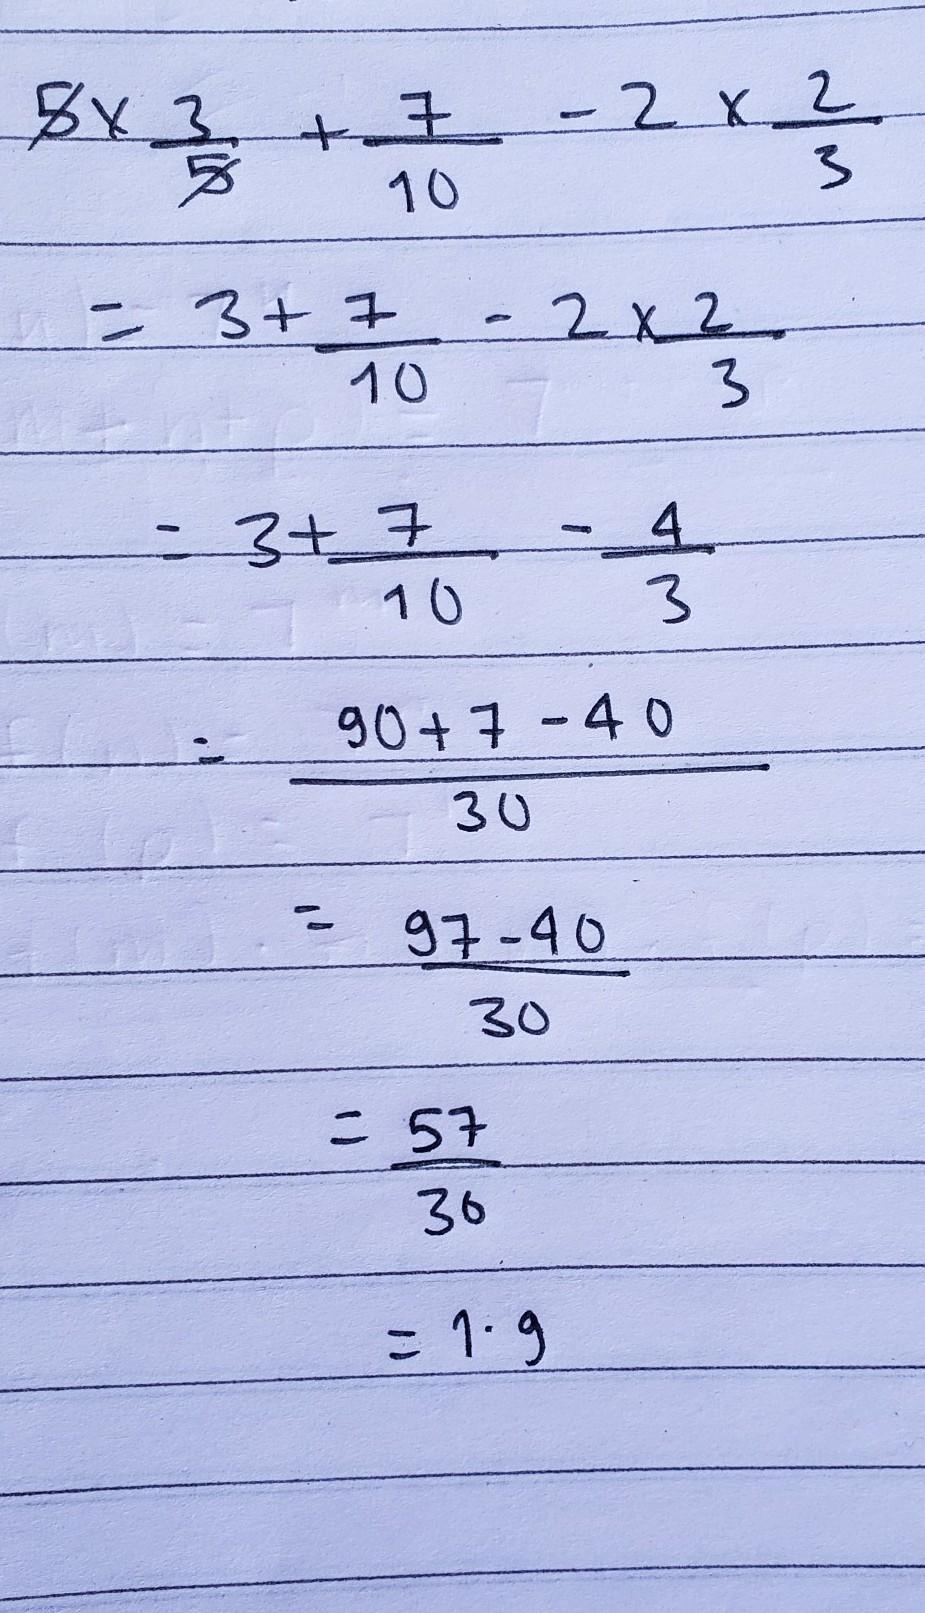 5 × 3/5 + 7/10 - 2 × 2/3
= 3 + 7/10 - 2 × 2/3
= 3 + 7/10 - 4/3
= 90 + 7 - 40/30
= 97 - 40/30
= 57/30
= 1.9